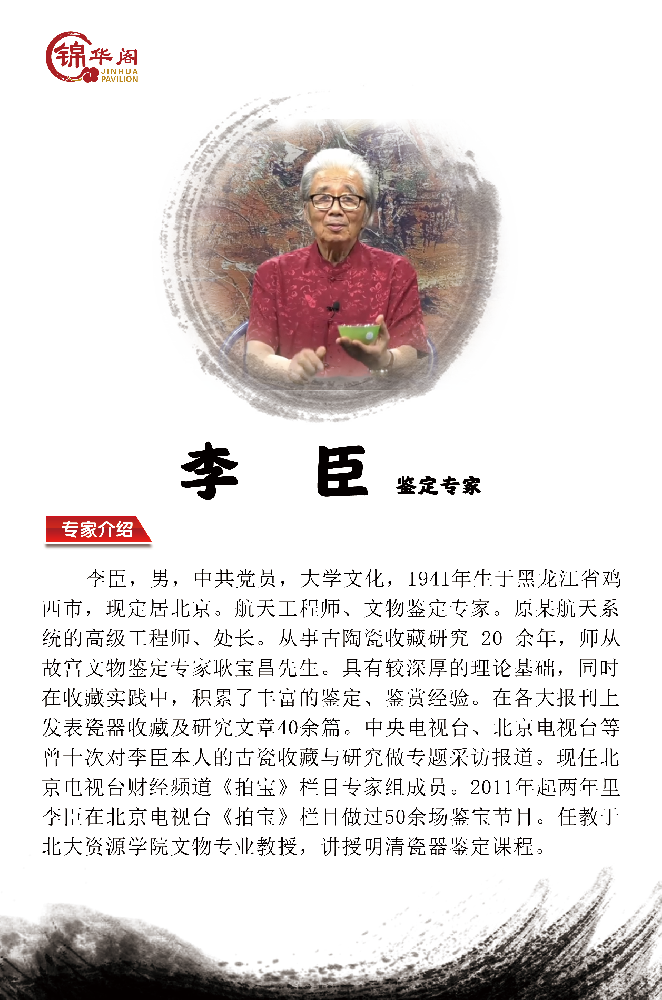 锦华阁
JINHUA
PAVILION
李 臣 鉴定专家
专家介绍
李臣，男，中共党员，大学文化，1941年生于黑龙江省鸡
西市，现定居北京。航天工程师、文物鉴定专家。原某航天系
统的高级工程师、处长。从事古陶瓷收藏研究 20 余年，师从
故宫文物鉴定专家耿宝昌先生。具有较深厚的理论基础，同时
在收藏实践中，积累了丰富的鉴定、鉴赏经验。在各大报刊上
发表瓷器收藏及研究文章40余篇。中央电视台、北京电视台等
曾十次对李臣本人的古瓷收藏与研究做专题采访报道。现任北
京电视台财经频道《拍宝》栏目专家组成员。2011年起两年里
李臣在北京电视台《拍宝》栏目做过50余场鉴宝节目。任教于
北大资源学院文物专业教授，讲授明清瓷器鉴定课程。